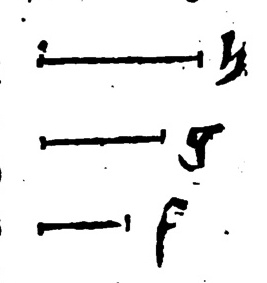 h
g
f